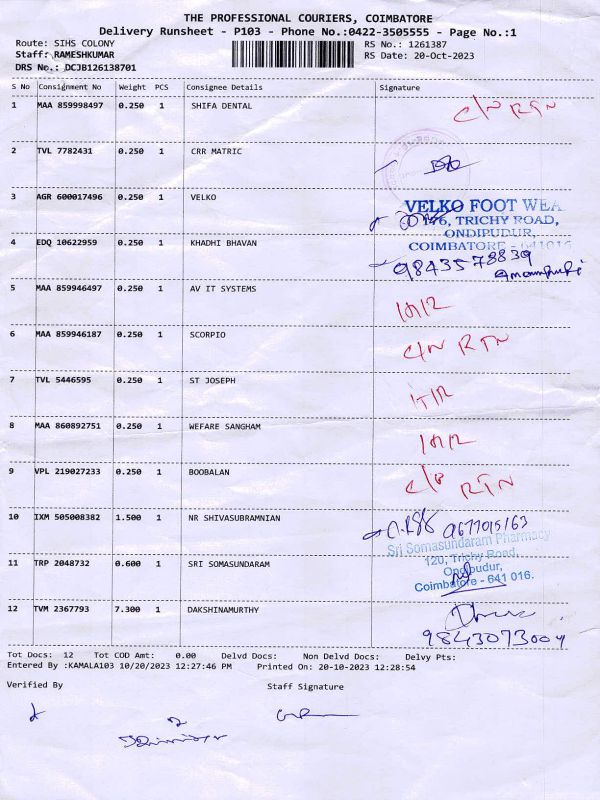 THE PROFESSIONAL COURIERS, COIMBATORE
Delivery Runsheet - P103 - Phone No.:0422-3505555 - Page No.:1
Route: SIHS COLONY RS No.: 1261387
Staff: RAMESHKUMAR RS Date: 20-Oct-2023
DRS No.: DCJB126138701
S No Consignment No Weight PCS Consignee Details Signature
1 MAA 859998497 0.250 1 SHIFA DENTAL C/N RTN
2 TVL 7782431 0.250 1 CRR MATRIC
3 AGR 600017496 0.250 1 VELKO
VELKO FOOT WEA
146, TRICHY ROAD,
ONDIPUDUR,
COIMBATORE - 641016
4 EDQ 10622959 0.250 1 KHADHI BHAVAN
9843578839
5 MAA 859946497 0.250 1 AV IT SYSTEMS
6 MAA 859946187 0.250 1 SCORPIO C/N RTN
7 TVL 5446595 0.250 1 ST JOSEPH
8 MAA 860892751 0.250 1 WEFARE SANGHAM
9 VPL 219027233 0.250 1 BOOBALAN RTN
10 IXM 505008382 1.500 1 NR SHIVASUBRAMNIAN 9677015163
Sri Somasundaram Pharmacy
120, Trichy Road,
11 TRP 2048732 0.600 1 SRI SOMASUNDARAM
Ondipudur,
Coimbatore - 641 016.
12 TVM 2367793 7.300 1 DAKSHINAMURTHY
9843073004
Tot Docs: 12 Tot COD Amt: 0.00 Delvd Docs: Non Delvd Docs: Delvy Pts:
Entered By :KAMALA103 10/20/2023 12:27:46 PM Printed On: 20-10-2023 12:28:54
Verified By Staff Signature